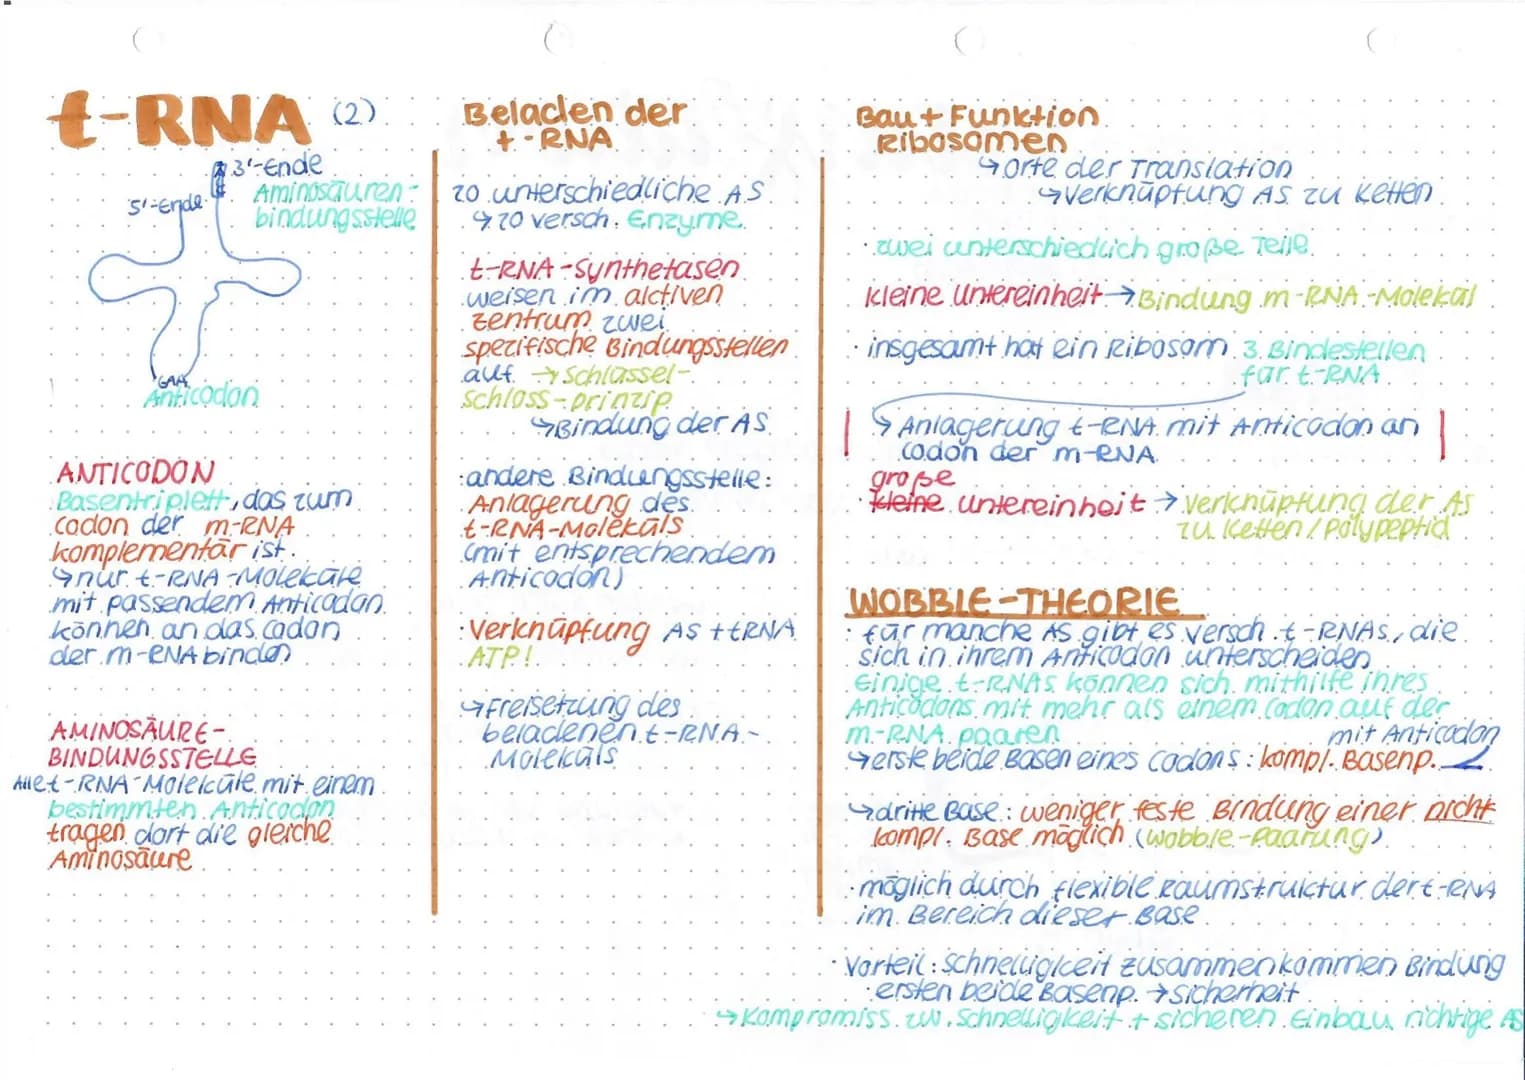 t-RNA (2)
3'-Ende
5'-Ende
Aminosäuren-
bindungsstelle
GAA
Anticodon
ANTICODON
Basentriplett, das zum
codon der m-RNA
komplementär ist.
↳nur t-RNA-Moleküle
mit passendem Anticodon
können an das codon
der m-RNA binden
AMINOSÄURE-
BINDUNGSSTELLE
Alle t-RNA-Moleküle mit einem
bestimmten Anticodon
tragen dort die gleiche
Aminosäure
Beladen der
t-RNA
20 unterschiedliche AS
↳20 versch. Enzyme
t-RNA-Synthetasen
weisen im aktiven
zentrum zwei
spezifische Bindungsstellen
auf → Schlüssel-
schloss-prinzip
↳Bindung der AS
·andere Bindungsstelle:
Anlagerung des
t-RNA-Moleküls
(mit entsprechendem
Anticodon)
·Verknüpfung AS + tRNA
ATP!
↳Freisetzung des
beladenen t-RNA-
Moleküls
Bau + Funktion
Ribosomen
↳Orte der Translation
↳Verknüpfung AS zu Ketten
·zwei unterschiedlich große Teile
kleine Untereinheit → Bindung m-RNA-Molekül
·insgesamt hat ein Ribosom 3 Bindestellen
für t-RNA
↳Anlagerung t-RNA mit Anticodon an
codon der m-RNA
große
·kleine untereinheit → Verknüpfung der AS
zu Ketten / Polypeptid
WOBBLE-THEORIE
·für manche AS gibt es versch. t-RNAs, die
sich in ihrem Anticodon unterscheiden
Einige t-RNAs können sich mithilfe ihres
Anticodons mit mehr als einem codon auf der
m-RNA paaren
mit Anticodon
↳erste beide Basen eines codons: kompl. Basenp.
↳dritte Base: weniger feste Bindung einer nicht
kompl. Base möglich (Wobble-Paarung)
·möglich durch flexible Raumstruktur der t-RNA
im Bereich dieser Base
·Vorteil: Schnelligkeit zusammenkommen Bindung
ersten beide Basenp. → Sicherheit
↳Kompromiss zw. Schnelligkeit + sicheren Einbau richtige AS